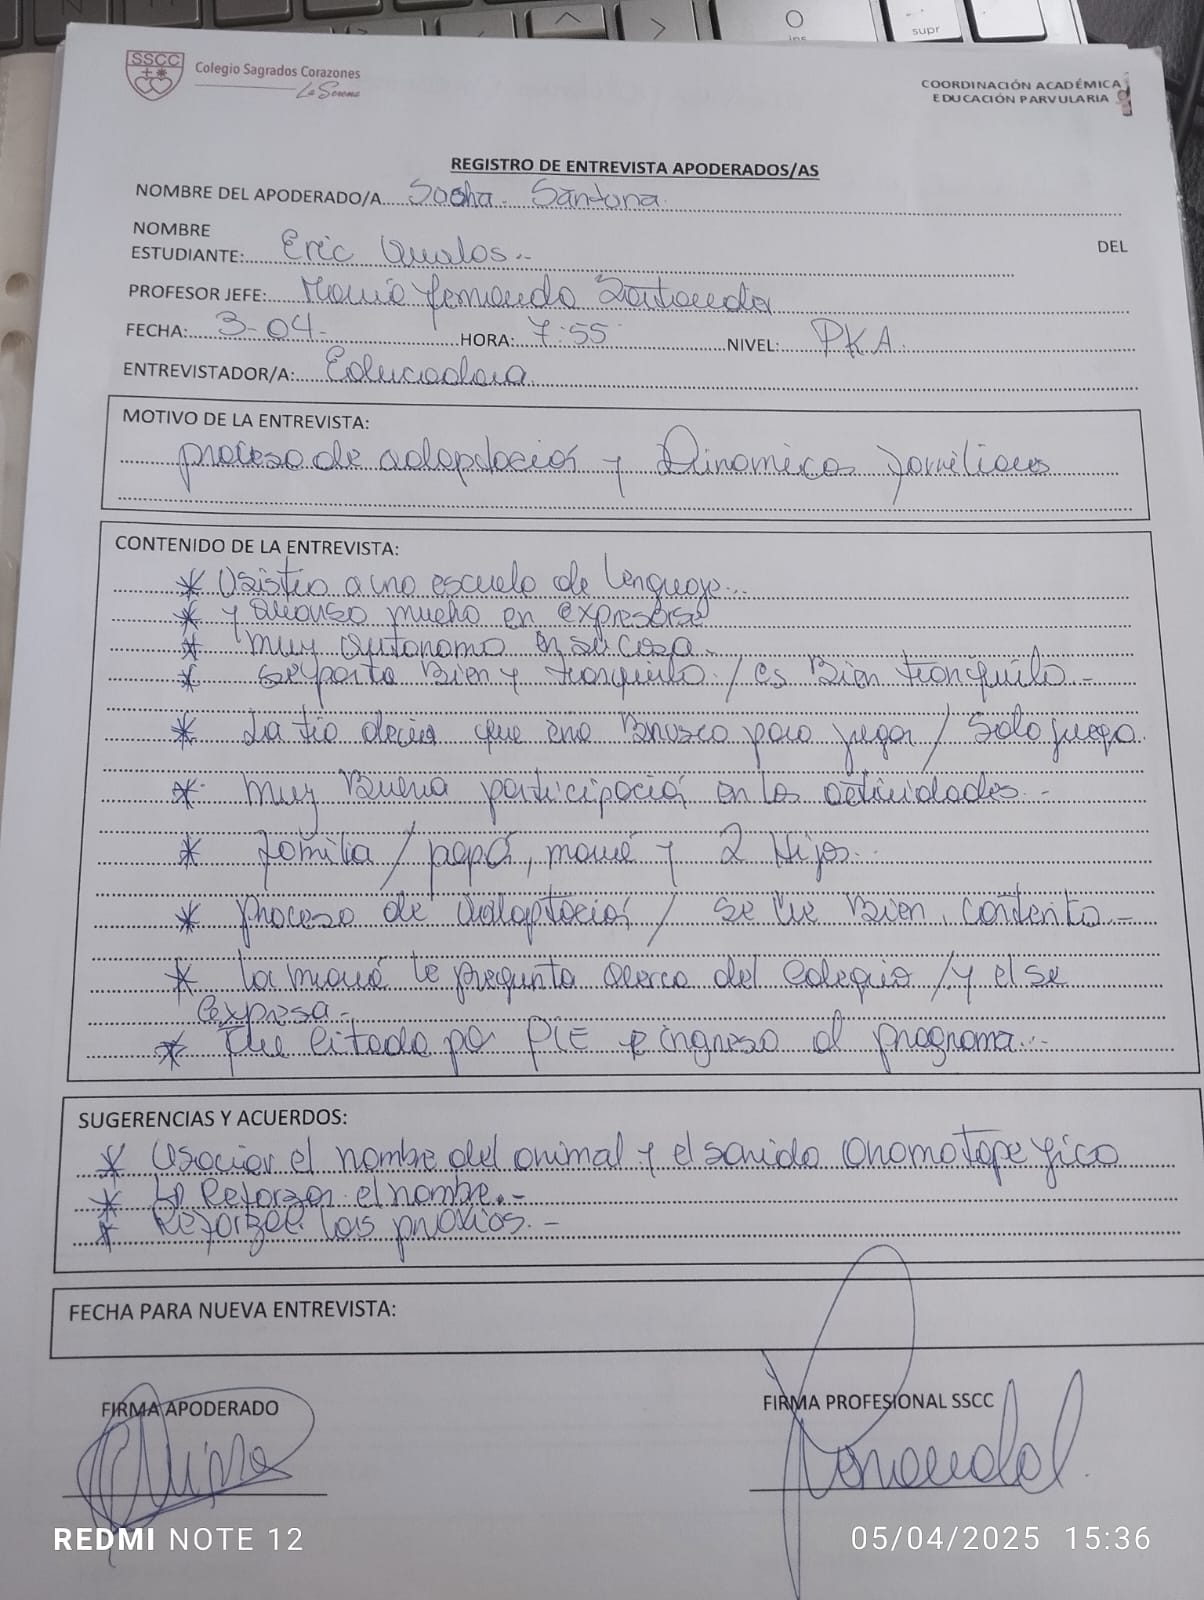 supr
SSCC
Colegio Sagrados Corazones
La Serena
COORDINACIÓN ACADÉMICA
EDUCACIÓN PARVULARIA
REGISTRO DE ENTREVISTA APODERADOS/AS
NOMBRE DEL APODERADO/A Sasha Santana
NOMBRE DEL
ESTUDIANTE: Eric
PROFESOR JEFE: Maria fernanda
FECHA: 3-04. HORA: 7:55 NIVEL: PKA.
ENTREVISTADOR/A: Educadora
MOTIVO DE LA ENTREVISTA:
proceso de adaptación y Dinamicas familiares
CONTENIDO DE LA ENTREVISTA:
* Asistio a una escuela de lenguaje...
* y avanso mucho en expresarse
* muy autonomo en su casa.
* se porta Bien y tranquilo. / es Bien tranquilo.-
* La tia decia que era Brusco para jugar / Solo juega.
* muy Buena participación en las actividades.-
* familia / papá, mamá y 2 Hijos..
* proceso de adaptación / se ve Bien, contento.-
* la mamá le pregunta acerca del colegio / y el se
expresa.-
* Fue citada por PIE e ingreso al programa..-
SUGERENCIAS Y ACUERDOS:
* Asociar el nombre del animal y el sonido onomatopeyico
* Reforzar el nombre..-
* Reforzar las praxias.-
FECHA PARA NUEVA ENTREVISTA:
FIRMA APODERADO FIRMA PROFESIONAL SSCC
REDMI NOTE 12 05/04/2025 15:36